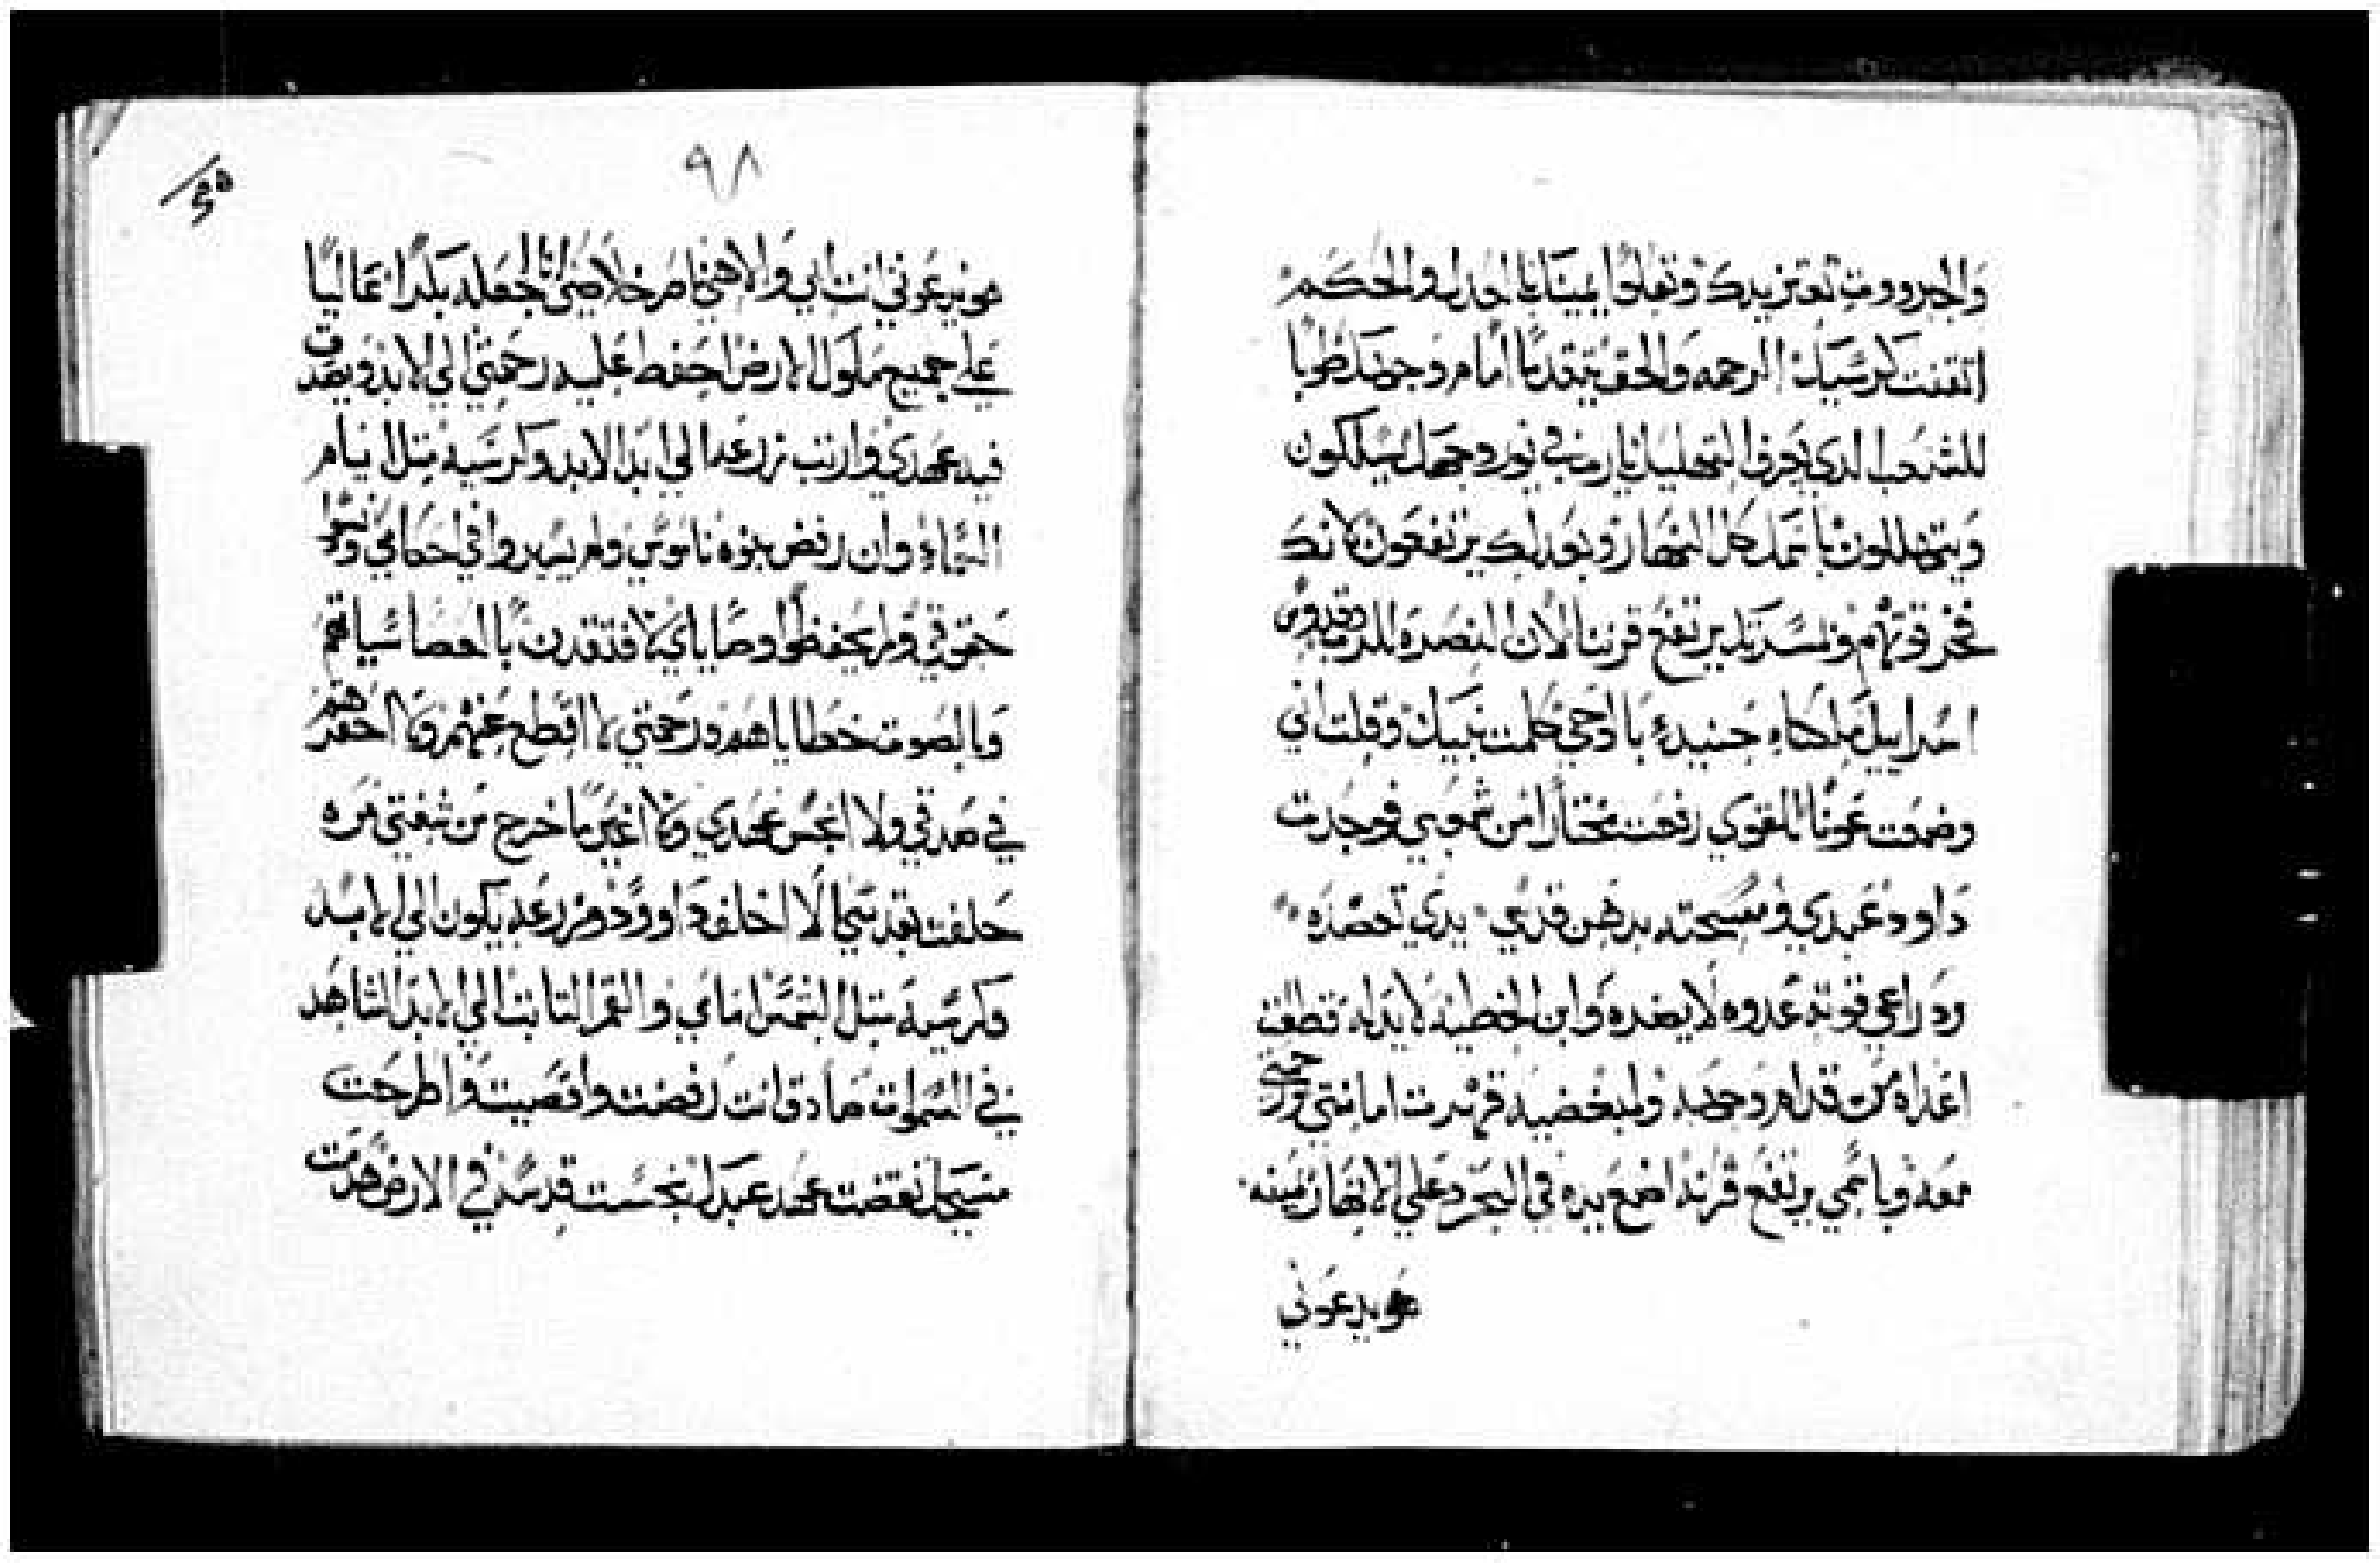 والجبروت تعتز يدك وتعلوا يميناً بالعدل والحكم
اتقنت كرسيك الرحمه والحق يتقدما امام وجهك طوبا
للشعب الدي يعرف التهليل يارب في نور وجهك يسلكون
ويتهللون باسمك كل النهار وبعدلك يرتفعون لانك
فخر قوتهم وبمسرتك يرتفع قرننا لان النصره للرب وقدوس
اسراييل ملكاه حينيد بالوحي كلمت نبيك وقلت اني
وضعت عوناً للقوي رفعت مختاراً من شعبي فوجدت
داوود عبدي ومسحته بدهن قدسي يدي تعضده
ودراعي قوته عدوه لا يضره وابن الخطيه لا يدله قطعت
اعداه من قدام وجهه ولمبغضيه قهرت امانتي ورحمتي
معه وباسمي يرتفع قرنه اضع يده في البحر وعلي الانهار يمينه
هو يدعوني
٩٨
هو يدعوني انت ابي والاهي ناصر خلاصي انا اجعله بكراً عالياً
علي جميع ملوك الارض احفظ عليه رحمتي الي الابد ويصدق
فيه عهدي وارتب زرعه الي ابد الابد وكرسيه متل ايام
السماء وان رفض بنوه ناموسي ولم يسيروا في احكامي ونسوا
حقوقي ولم يحفظوا وصاياي لافتقدن بالعصا سياتهم
وبالصوت خطاياهم ورحمتي لا اقطع عنهم ولا احقرهم
في صدقي ولا انجس عهدي ولا اغير ما خرج من شفتي مره
حلفت بقدسي الا اخلف داوود زرعه يكون الي الابد
وكرسيه متل الشمس امامي والقمر التابت الي الابد الشاهد
في السموات صادق انت رفضت واقصيت واطرحت
مسيحك نقضت عهد عبدك نجست قدسه في الارض هدمت